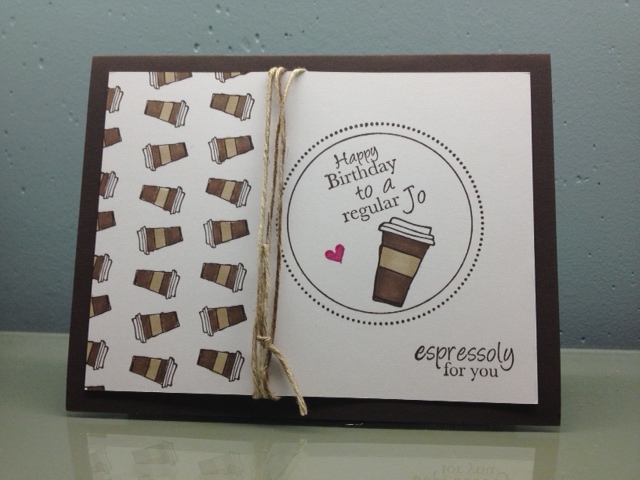 Happy
Birthday
to a
regular Jo
espressoly
for you